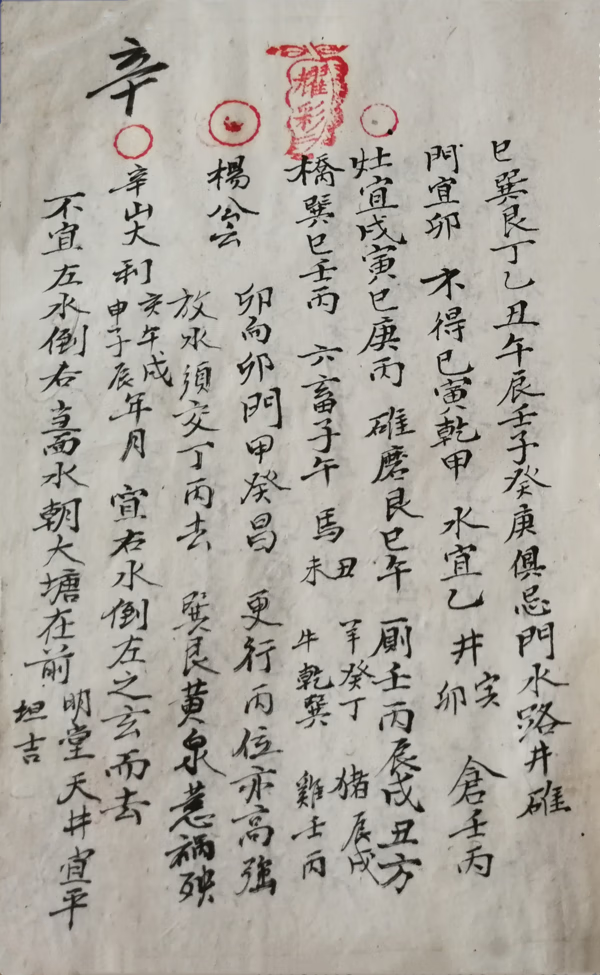 巳巽艮丁乙丑午辰壬子癸庚俱忌門水路井碓
門宜卯 不得巳寅乾甲 水宜乙 井卯 倉壬丙
灶宜戌寅巳庚丙 碓磨艮巳午 厠壬丙辰戌丑方
橋巽巳壬丙 六畜子午 馬丑未 羊癸丁 牛乾巽 猪辰戌 雞壬丙
耀彩
楊公云
卯向卯門甲癸昌 更行丙位亦高強
放水須交丁丙去 巽艮黃泉惹禍殃
辛
辛山大利 亥午戌申子辰年月 宜右水倒左之玄而去
不宜左水倒右當面水朝大塘在前 明堂天井宜平坦吉